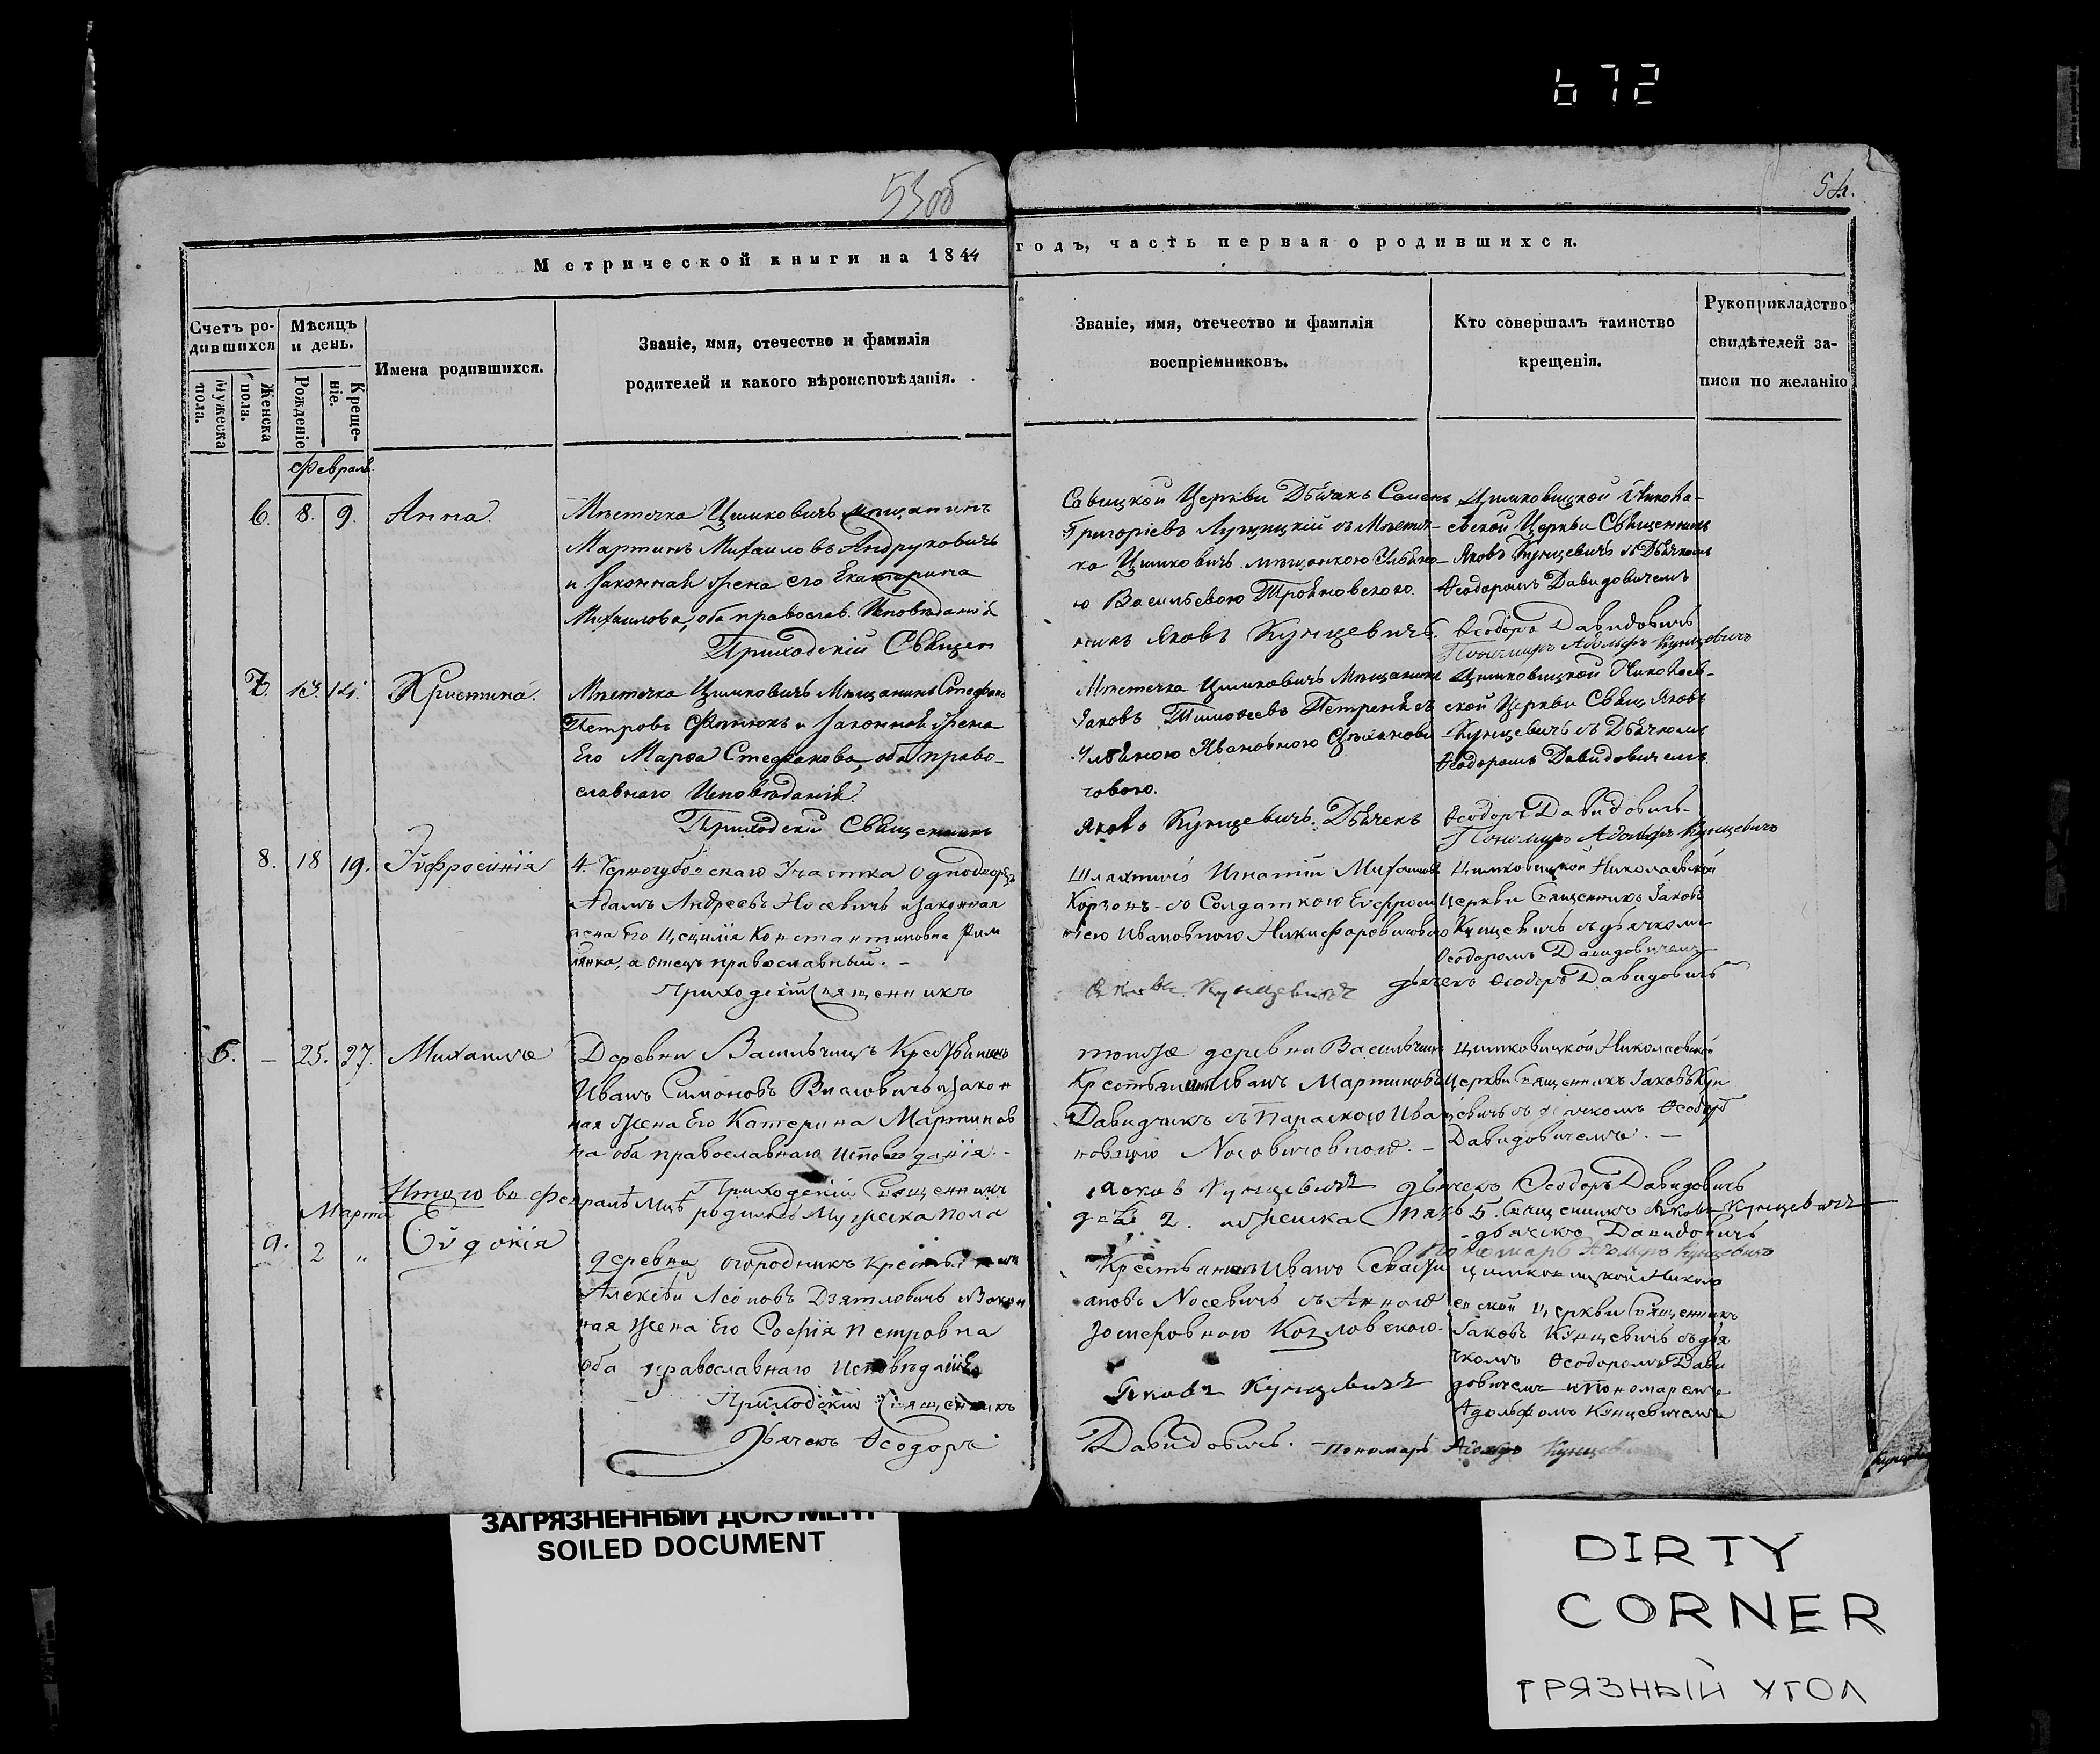 672
53об
54.
Метрической книги на 1844
годъ, часть первая о родившихся.
Счетъ ро-
дившихся
Мѣсяцъ
и день.
Имена родившихся.
Званіе, имя, отечество и фамилія
родителей и какого вѣроисповѣданія.
Мужеска
пола.
Женска
пола.
Рожденіе
Креще-
ніе.
Званіе, имя, отечество и фамилія
воспріемниковъ.
Кто совершалъ таинство
крещенія.
Рукоприкладство
свидѣтелей за-
писи по желанію
Февраль.
6. 8. 9. Анна.
Мѣстечка Цимковичъ мѣщанинъ
Мартинъ Михаиловъ Андруковичъ
и законная жена его Екатерина
Михаилова, оба православ. Исповѣданія
Приходскій Священ
Савицкой Церкви Дьячекъ Семенъ
Григоріевъ Лущицкій съ Мѣстеч-
ка Цимковичъ мѣщанкою Ульяно-
ю Васильевою
никъ Яковъ Кунцевичъ.
Цимковицкой Никола-
евской Церкви Священникъ
Яковъ Кунцевичъ съ Дьячкомъ
Ѳеодоромъ Давидовичемъ
Ѳеодоръ Давидовичъ
Пономарь Адольфъ Кунцевичъ
7. 13. 14. Христина.
Мѣстечка Цимковичъ Мѣщанинъ Стефанъ
Петровъ и законная жена
Его Марѳа Стефанова, оба право-
славнаго Исповѣданія.
Приходскій Священникъ
Мѣстечка Цимковичъ Мѣщанинъ
Яковъ Тимоѳеевъ съ
Ульяною Ивановною
човою.
Яковъ Кунцевичъ. Дьячекъ
Цимковицкой Николаев-
ской Церкви Свящ. Яковъ
Кунцевичъ съ Дьячкомъ
Ѳеодоромъ Давидовичемъ.
Ѳеодоръ Давидовичъ
Пономарь Адольфъ Кунцевичъ
8. 18 19. Эѵфросинія
4. Черногубовскаго Участка Однодворецъ
Адамъ Андреевъ Носевичъ и законная
жена Его Цецилія Константиновна Рим
лянка, а отецъ православный. -
Приходскій Священникъ
Шляхтичъ Игнатій Михаиловъ
Корзонъ съ Солдаткою Евфроси
ніею Ивановною Никифоровичевою
Яковъ Кунцевичъ
Цимковицкой Николаевской
Церкви Священникъ Іаковъ
Кунцевичъ съ дьячкомъ
Ѳеодоромъ Давидовичемъ
дьячекъ Ѳеодоръ Давидовичъ
5. - 25. 27. Михаилъ
Деревни Васильчицъ Крестьянинъ
Иванъ Симоновъ и закон
ная жена Его Катерина Мартинов
на оба православнаго исповѣданія. -
Приходскій Священникъ
тойже деревни Васильчицъ
Крестьянинъ Иванъ Мартиновъ
Давидчикъ съ Параскою Ива
новною Носовичовною. -
Яковъ Кунцевичъ
Цимковицкой Николаевской
Церкви Священникъ Іаковъ Кун
цевичъ съ дьячкомъ Ѳеодор
Давидовичемъ. -
дьячекъ Ѳеодоръ Давидовичъ
Итого въ февралѣ Мцѣ родилось Мужеска пола
двѣ 2. а Женска пять 5. Священникъ Яковъ Кунцевичъ
дьячекъ Давидовичъ
Пономарь Адольфъ Кунцевичъ
Марта
9. 2 „ Еѵдокія
деревни огородникъ
Алексѣй Леоновъ Дзятловичъ и Закон
ная Жена Его Софія Петровна
оба православнаго исповѣданія
Приходскій Священникъ
Дьячекъ Ѳеодоръ
Крестьянинъ Иванъ
ановъ Носевичъ съ Анною
Іосифовною Козловскою.
Яковъ Кунцевичъ
Давидовичъ. - Пономарь Адольфъ
цимковицкой Никола
евской церкви Священникъ
Іаковъ Кунцевичъ съ дья
чкомъ Ѳеодоромъ Дави
довичемъ и Пономаремъ
Адольфомъ Кунцевичемъ
ЗАГРЯЗНЕННЫЙ ДОКУМЕНТ
SOILED DOCUMENT
DIRTY
CORNER
ГРЯЗНЫЙ УГОЛ